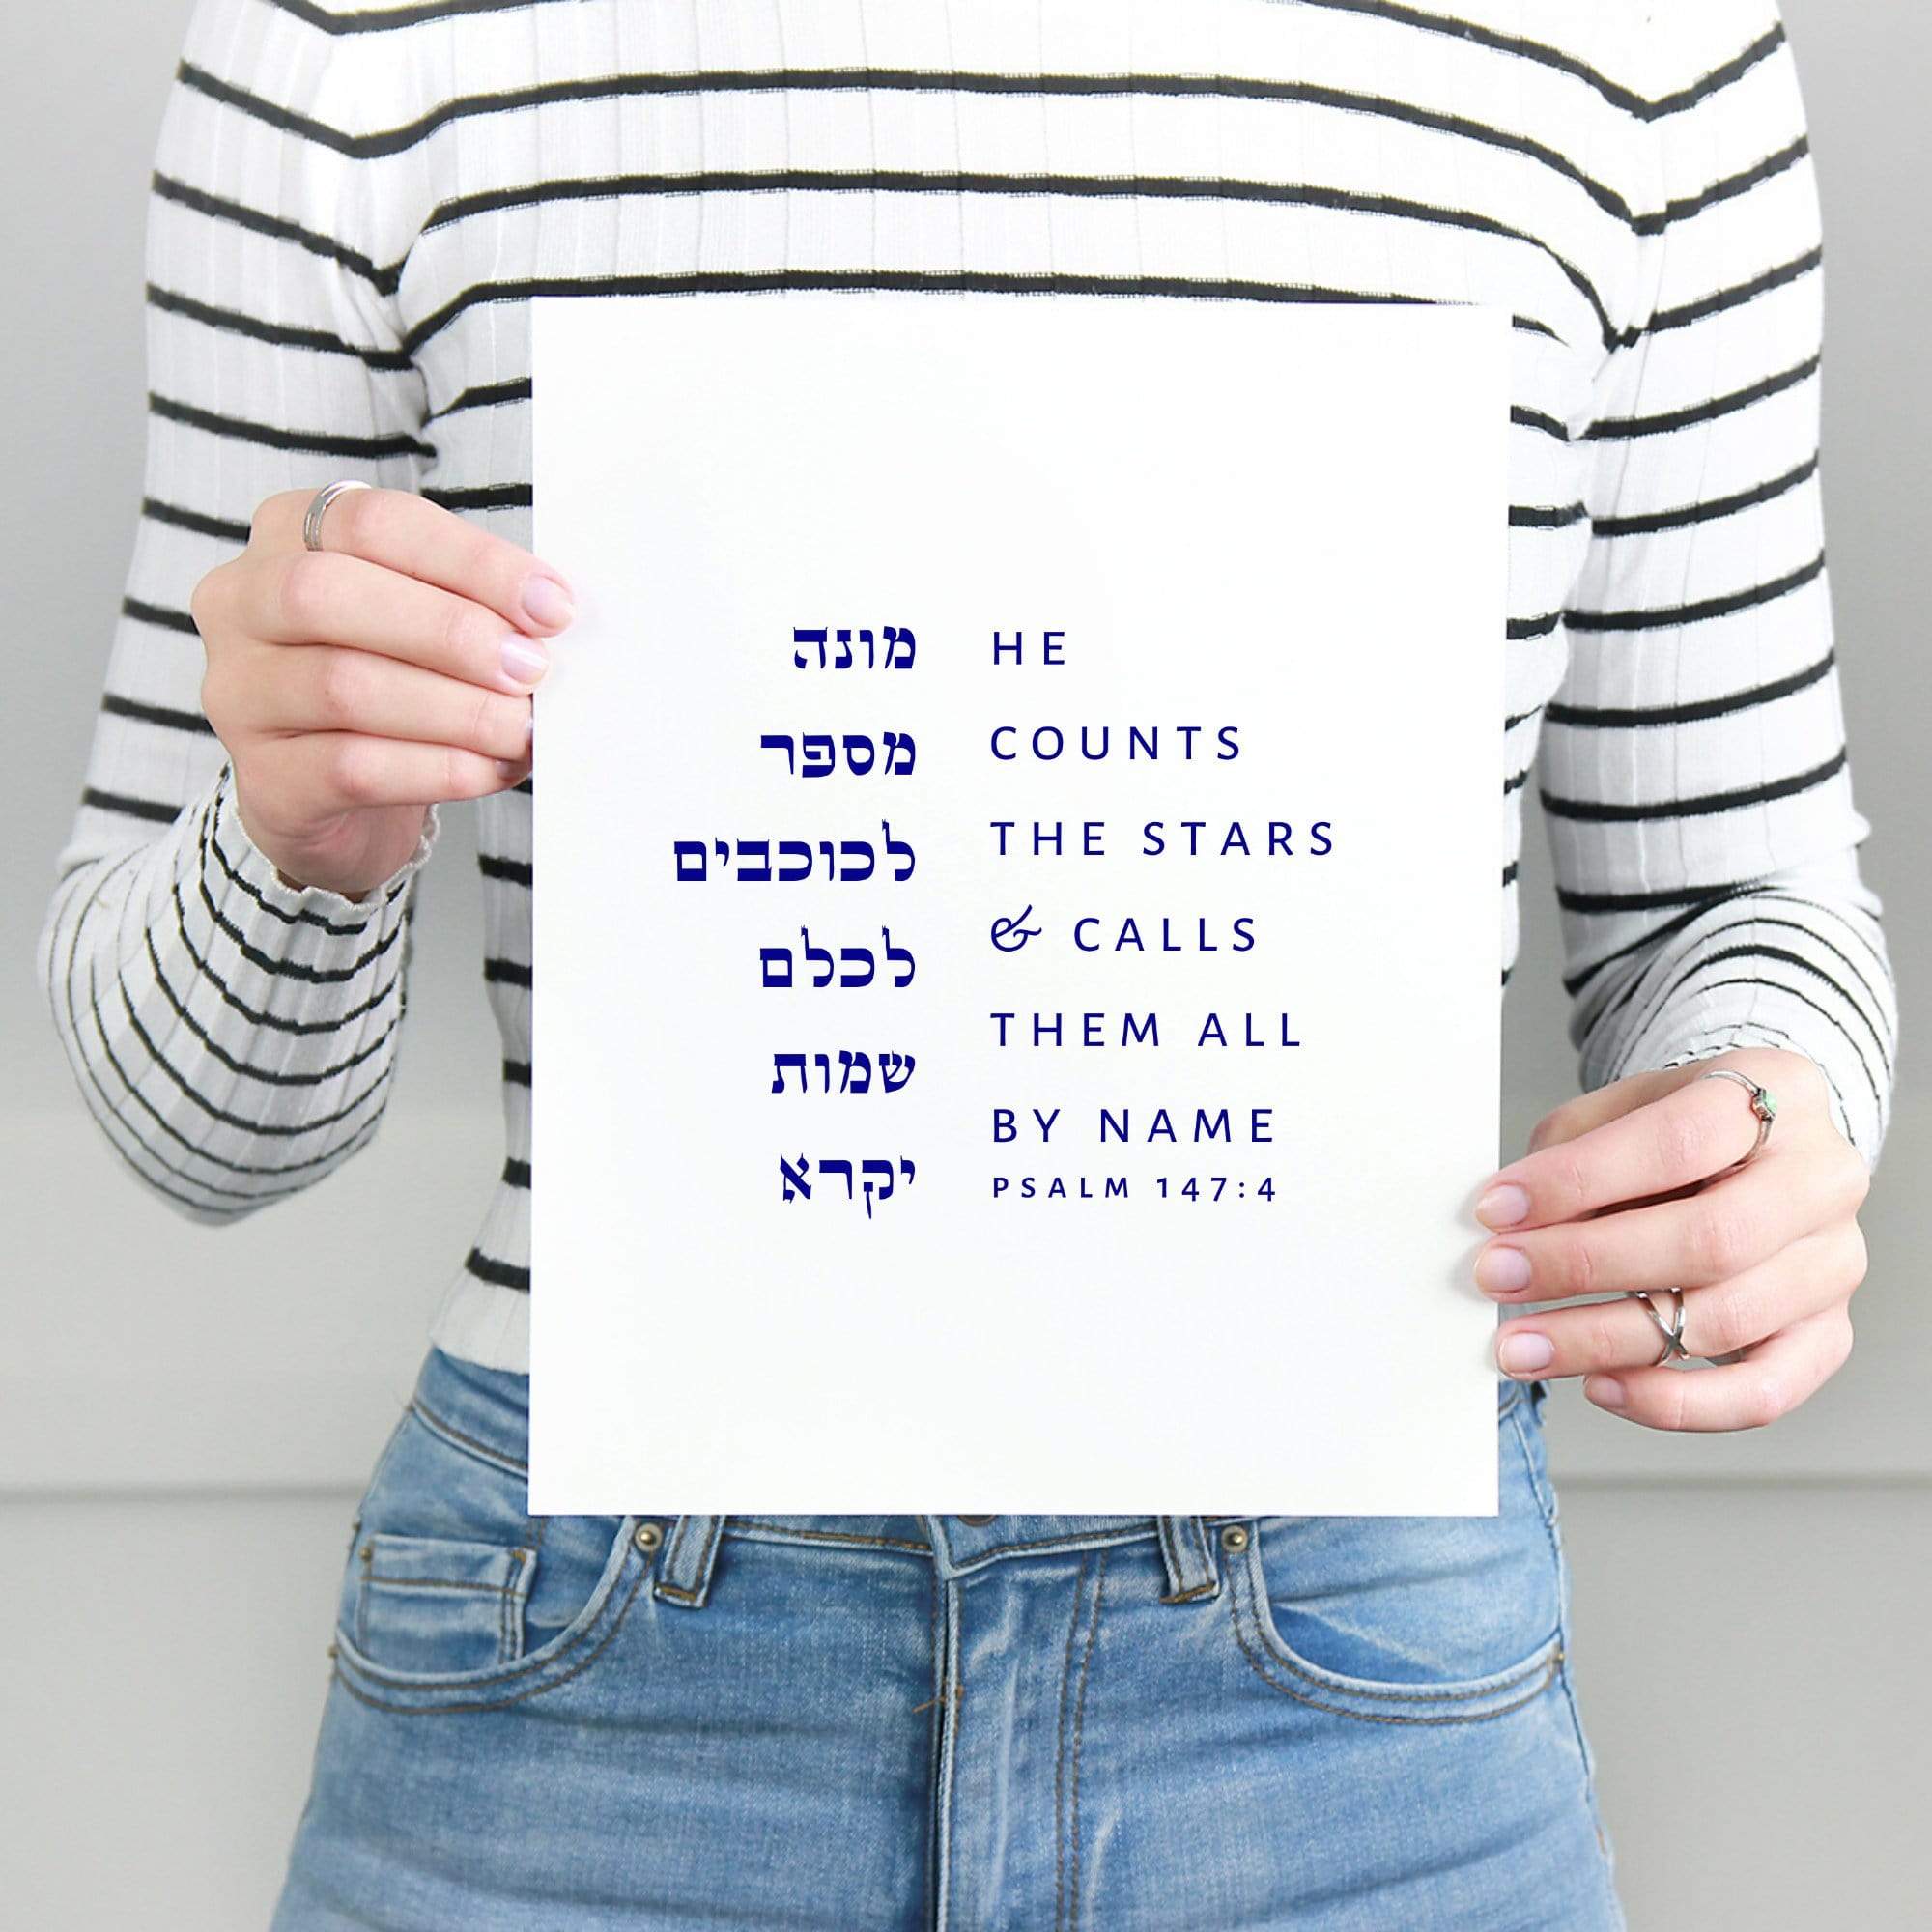 מונה
מספר
לכוכבים
לכלם
שמות
יקרא
HE
COUNTS
THE STARS
& CALLS
THEM ALL
BY NAME
PSALM 147:4